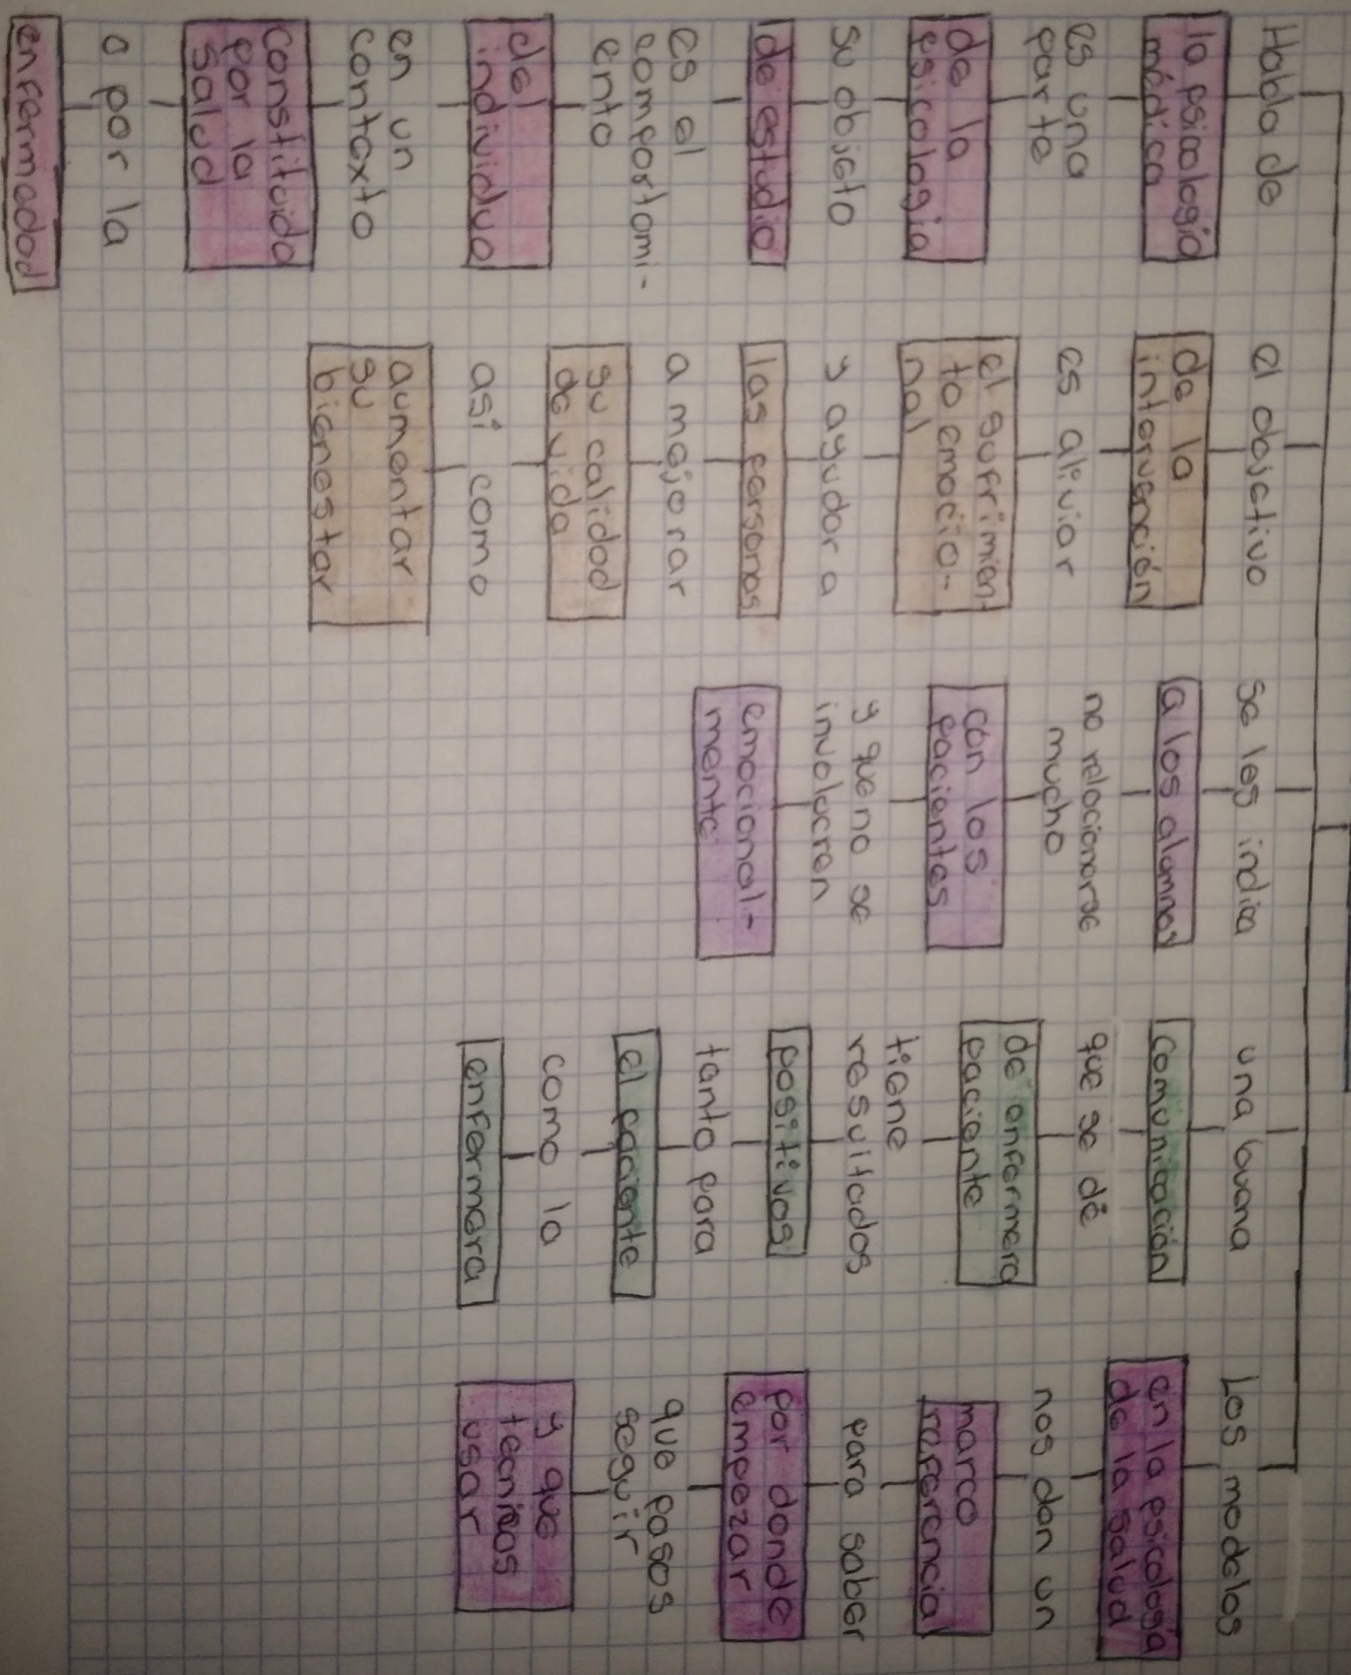 Habla de
la psicología
médica
es una
parte
de la
psicología
su objeto
de estudio
es el
comportami-
ento
del
individuo
en un
contexto
constituido
por la
salud
o por la
enfermedad
el objetivo
de la
intervención
es aliviar
el sufrimien
to emocio-
nal
y ayudar a
las personas
a mejorar
su calidad
de vida
así como
aumentar
su
bienestar
se les indica
a los alumnos
no relacionarse
mucho
con los
pacientes
y que no se
involucren
emocional-
mente
una buena
comunicación
que se dé
de enfermera
paciente
tiene
resultados
positivos
tanto para
el paciente
como la
enfermera
Los modelos
en la psicología
de la salud
nos dan un
marco
referencia
para saber
por donde
empezar
que pasos
seguir
y que
tecnicas
usar